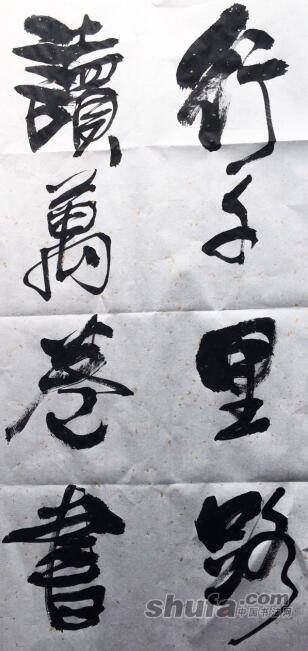 行千里路
讀萬卷書
shufa.com
中国书法网